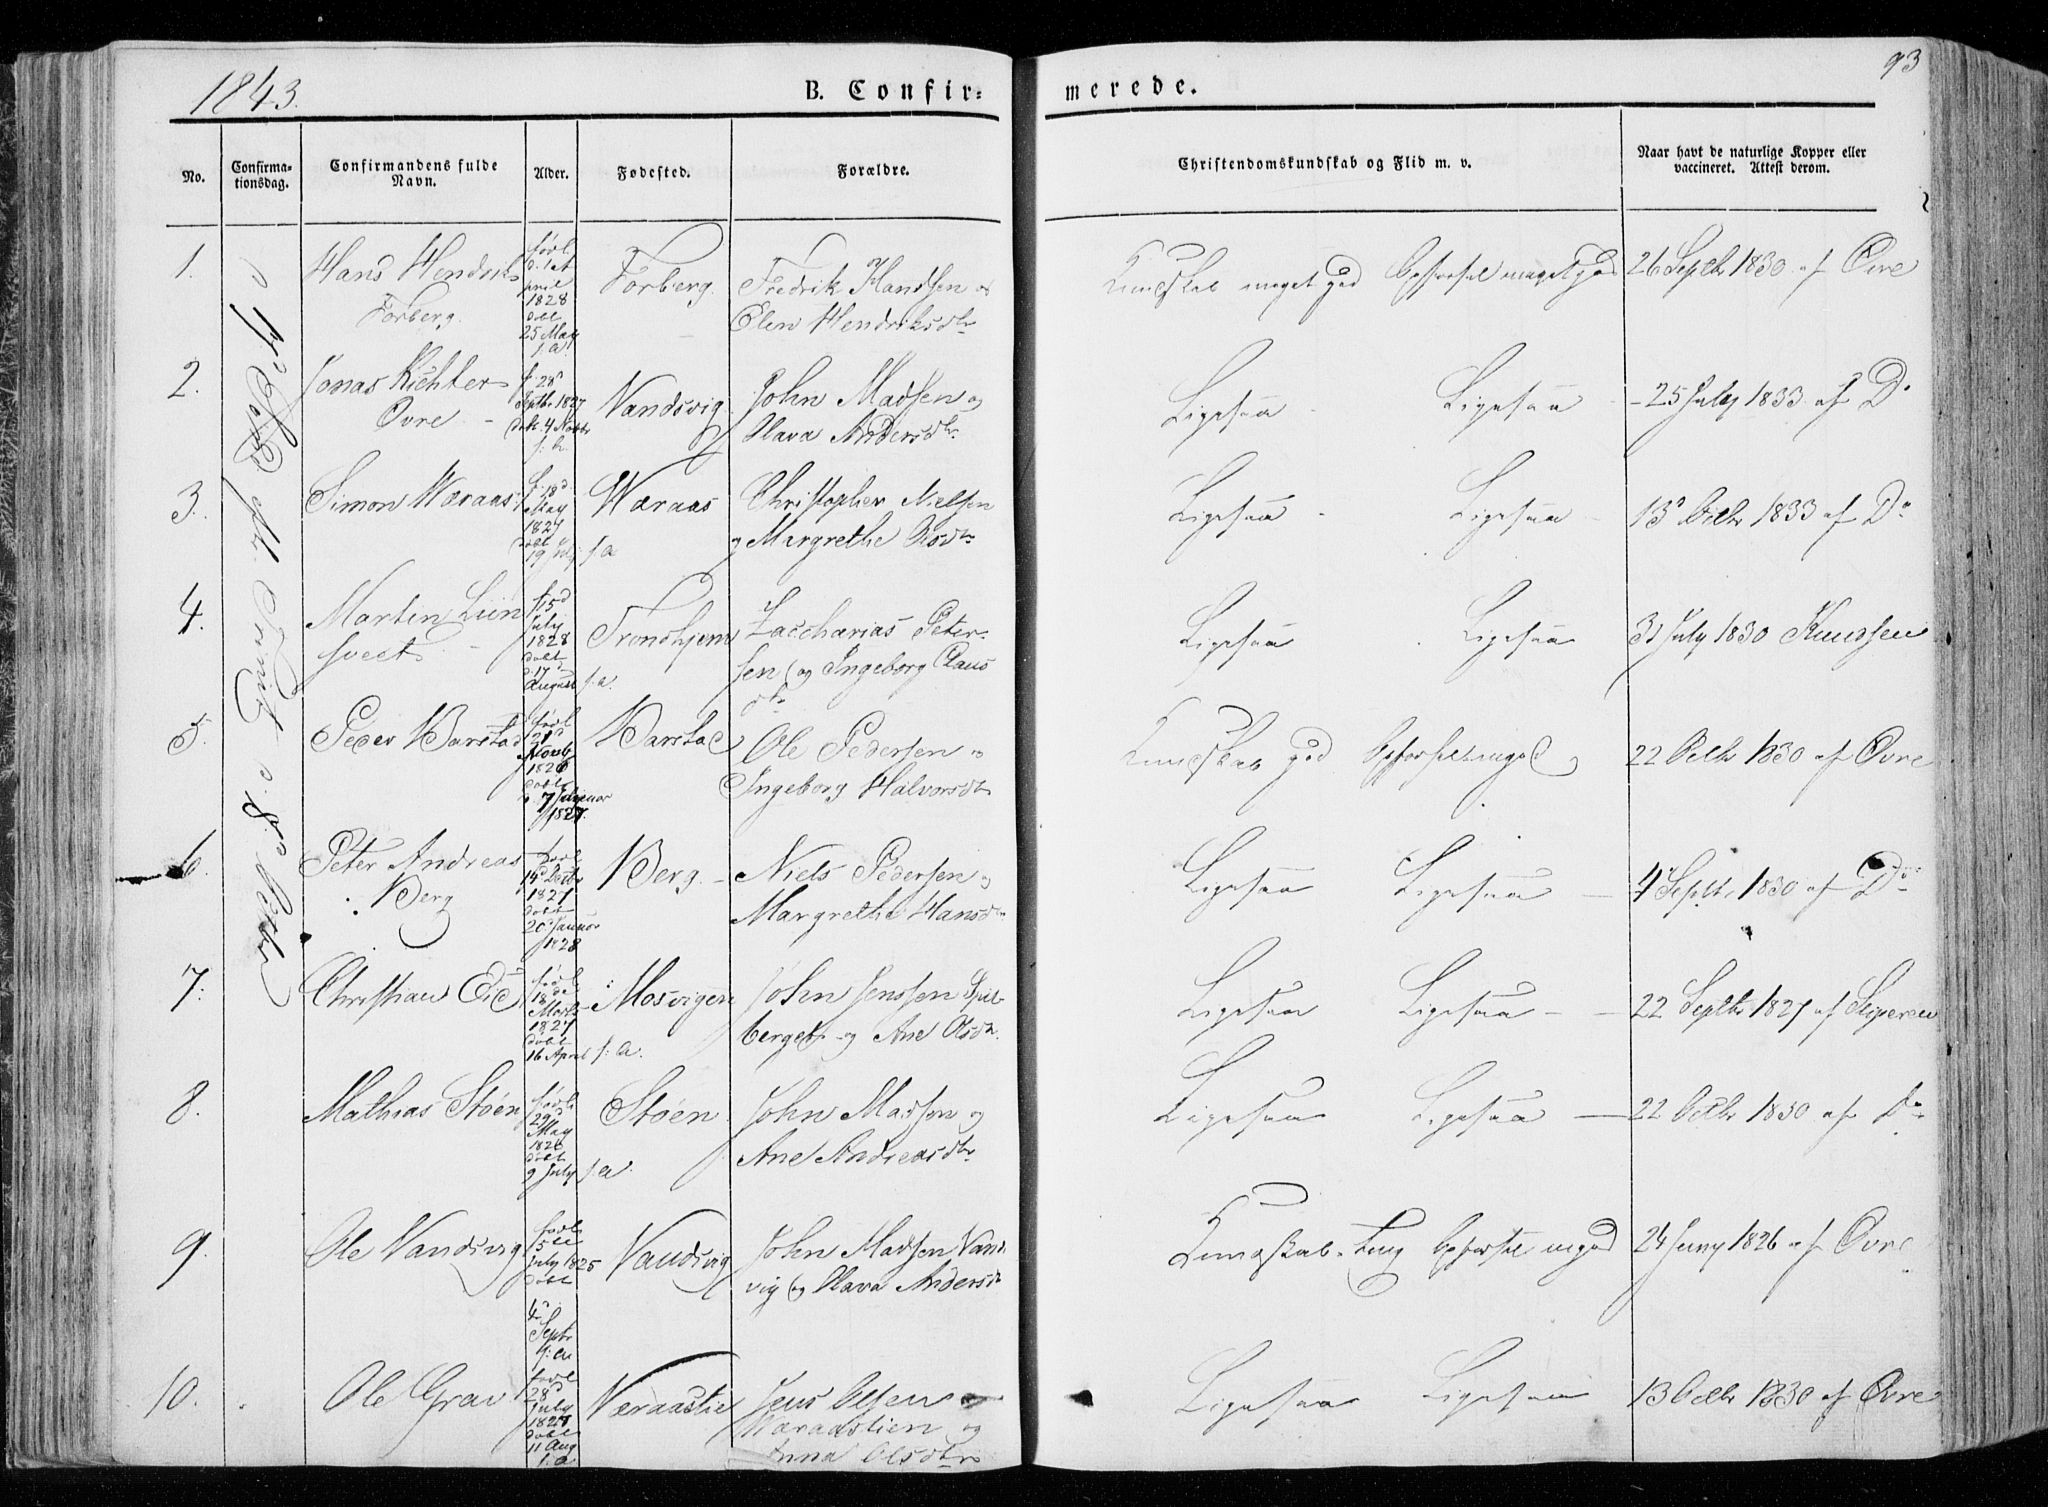 1843.
B. Confir=
merede.
93
No.
Confirma-
tionsdag.
Confirmandens fulde
Navn.
Alder.
Fødested.
Forældre.
Christendomskundskab og Flid m. v.
Naar havt de naturlige Kopper eller
vaccineret. Attest derom.
1.
Hans Hendrik
Forberg.
født
1828
døbt
25 May
s. a.
Forberg.
Fredrik Handsen og
Elen Hendriksdtr
Kundskab meget god
Opførsel meget god
26 Septbr 1830 af Øvre
2.
Jonas Richter
Øvre
f. 28
Septbr 1827
døbt 4 Novbr
Vandsvig
John Madsen og
Olava Andersdtr
Ligesaa
Ligesaa
25 July 1833 af Do
3.
Simon Waraas
f. 18d
May
1827
døbt
19 July s. a
Waraas
Christopher Nielsen
og Margrethe Olsdtr
Ligesaa
Ligesaa
13 Octbr 1833 af Do
4.
Martin Lien
f. 15d
July
1828
døbt
17
August s. a.
Trondhjem
Zaccharias Peter-
sen og Ingeborg Claus
dtr
Ligesaa
Ligesaa
31 July 1830 Knudsen
5.
Peder Barstad
født
21d
1826
døbt
7 Januar
1827.
Barstad
Ole Pedersen og
Ingeborg Halvorsdtr
Kundskab god
Opførsel meget god
22 Octbr 1830 af Øvre
6.
Peter Andreas
Berg
født
14d Decbr
1827
døbt
20 Januar
1828
Berg.
Niels Pedersen og
Margrethe Hansdtr
Ligesaa
Ligesaa
4 Septr 1830 af Do
7.
Christian Eid
født
18de
Marts
1827
døbt
16 April s. a.
Mosvigen
John Jensen Spil-
berget og Ane Olsdtr.
Ligesaa
Ligesaa
22 Septbr 1827 af
8.
Mathias Støen
født
29d
May
1826
døbt
9 July s. a
Støen
John Madsen og
Ane Andreasdtr
Ligesaa
Ligesaa
22 Octbr 1830 af Do
9.
Ole Vandsvig
født
5te
July 1825
døbt
4
Septr
s. a
Vandsvig
John Madsen Vand
vig og Olava Andersdtr
Kundskab
Opførsel meget god
24 Juny 1826 af Øvre
10.
Ole Grav
født
28d
July
døbt
11 Aug
s. a
Veraastie
Jens Olsen
Waraastien og
Anna Olsdtr
Ligesaa
Ligesaa
13 Octbr 1830 af Øvre